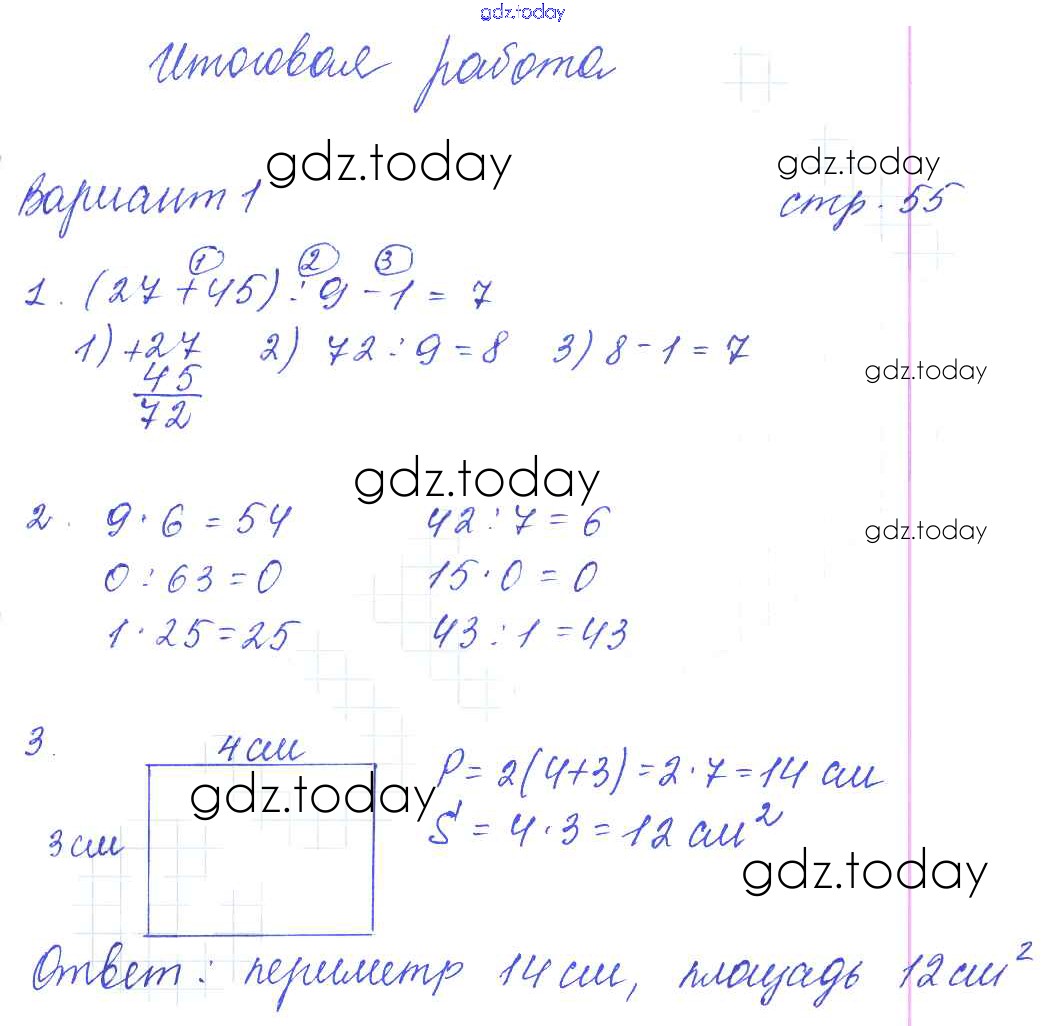 gdz.today
Итоговая работа
gdz.today gdz.today
Вариант 1 стр. 55
① ② ③
1. (27 + 45) : 9 - 1 = 7
1) +27 2) 72 : 9 = 8 3) 8 - 1 = 7
45
gdz.today
72
gdz.today
2. 9 · 6 = 54 42 : 7 = 6
gdz.today
0 : 63 = 0 15 · 0 = 0
1 · 25 = 25 43 : 1 = 43
3. 4 см
P = 2(4+3) = 2 · 7 = 14 см
gdz.today
S = 4 · 3 = 12 см²
3 см
gdz.today
Ответ: периметр 14 см, площадь 12 см²